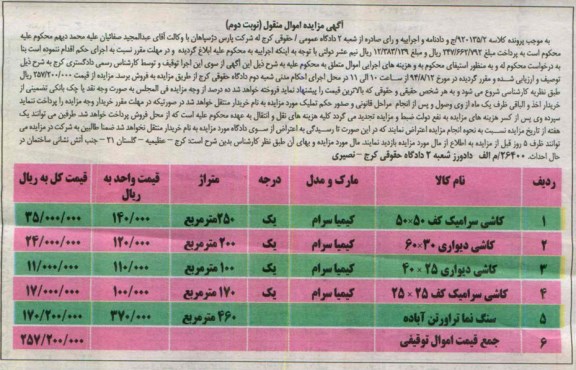 آگهی مزایده اموال منقول (نوبت دوم)
به موجب پرونده کلاسه ۹۲/۱۳۵/۲ج و دادنامه و اجراییه و رای صادره از شعبه ۲ دادگاه عمومی / حقوقی کرج که شرکت پارس دژسپاهان با وکالت آقای عبدالمجید صفائیان علیه محمد دیهم محکوم علیه
محکوم است به پرداخت مبلغ ۲۴۷/۶۶۲/۷۹۲ ریال و مبلغ ۱۲/۳۸۳/۱۳۹ ریال نیم عشر دولتی با توجه به اینکه اجراییه به محکوم علیه ابلاغ گردیده و در مهلت مقرر نسبت به اجرای حکم اقدام ننموده است بنا
به درخواست محکوم له و به منظور استیفای محکوم به و هزینه های اجرایی اموال متعلق به محکوم علیه به شرح ذیل این آگهی از سوی این اجرا توقیف و توسط کارشناس رسمی دادگستری کرج به شرح ذیل
توصیف و ارزیابی شده و مقرر گردیده در مورخ ۹۴/۸/۱۲ از ساعت ۱۰ الی ۱۱ در محل اجرای احکام مدنی شعبه دوم دادگاه حقوقی کرج از طریق مزایده به فروش برسد. مزایده از قیمت ۲۵۷/۲۰۰/۰۰۰ ریال
طبق نظریه کارشناسی شروع می شود و به هر شخص حقیقی و حقوقی که بالاترین قیمت را پیشنهاد نماید فروخته خواهد شد ده درصد از وجه مزایده فی المجلس به صورت وجه نقد یا چک بانکی تضمینی از
خریدار اخذ و الباقی ظرف یک ماه از وی وصول و پس از انجام مراحل قانونی و صدور حکم تملیک مورد مزایده به نام خریدار منتقل خواهد شد در صورتیکه در مهلت مقرر خریدار وجه مزایده را پرداخت ننماید
سپرده وی پس از کسر هزینه های مزایده به نفع دولت ضبط و مزایده تجدید می گردد کلیه هزینه های نقل و انتقال به عهده محکوم علیه است که از محل فروش پرداخت خواهد شد. طرفین می توانند یک
هفته از تاریخ مزایده نسبت به نحوه انجام مزایده اعتراض نمایند که در این صورت تا رسیدگی به اعتراض از سوی دادگاه مورد مزایده به نام خریدار منتقل نخواهد شد ضمنا طالبین به شرکت در مزایده می
توانند ظرف ۵ روز قبل از مزایده به اطلاع از مال مورد مزایده بازدید نمایند. مال مورد مزایده و بهای آن طبق نظر کارشناس بدین شرح است: کرج - عظیمیه - گلستان ۲۱ - جنب آتش نشانی ساختمان در
حال احداث. ۲۶۴۰۰/م الف دادورز شعبه ۲ دادگاه حقوقی کرج - نصیری
ردیف نام کالا مارک و مدل درجه متراژ قیمت واحد به ریال قیمت کل به ریال
۱ کاشی سرامیک کف ۵۰×۵۰ کیمیا سرام یک ۲۵۰مترمربع ۱۴۰/۰۰۰ ۳۵/۰۰۰/۰۰۰
۲ کاشی دیواری ۳۰×۶۰ کیمیا سرام یک ۲۰۰ مترمربع ۱۲۰/۰۰۰ ۲۴/۰۰۰/۰۰۰
۳ کاشی دیواری ۲۵ × ۴۰ کیمیا سرام یک ۱۰۰ مترمربع ۱۱۰/۰۰۰ ۱۱/۰۰۰/۰۰۰
۴ کاشی سرامیک کف ۲۵ × ۲۵ کیمیا سرام یک ۱۷۰ مترمربع ۱۰۰/۰۰۰ ۱۷/۰۰۰/۰۰۰
۵ سنگ نما تراورتن آباده ۴۶۰ مترمربع ۳۷۰/۰۰۰ ۱۷۰/۲۰۰/۰۰۰
۶ جمع قیمت اموال توقیفی ۲۵۷/۲۰۰/۰۰۰